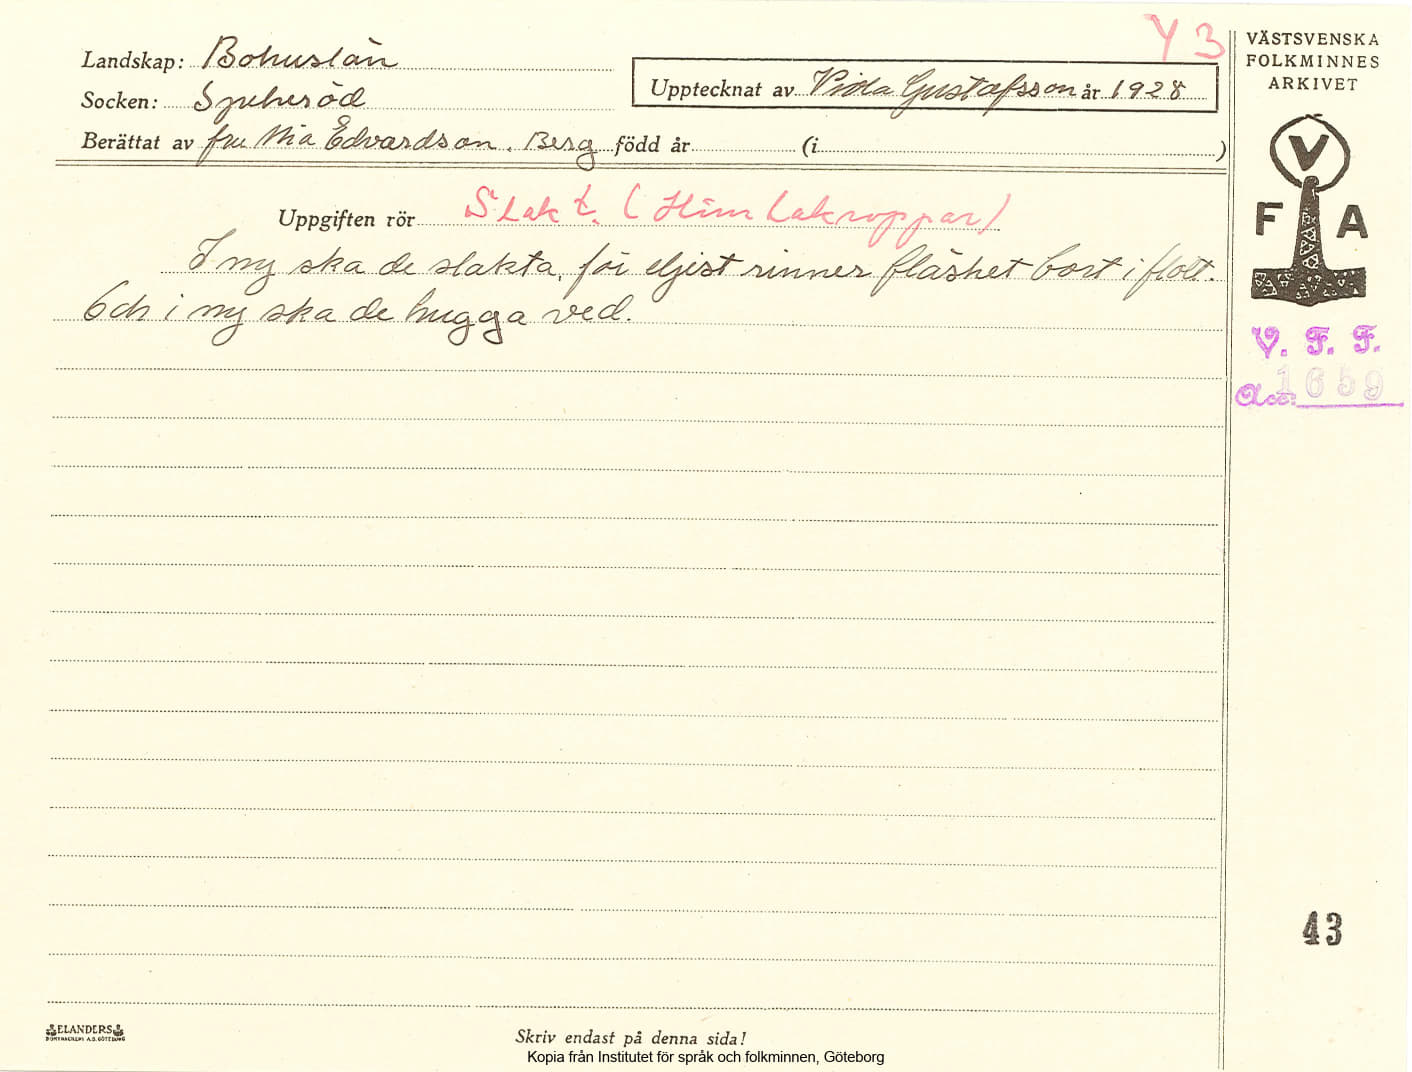 Y 3
VÄSTSVENSKA
FOLKMINNES
ARKIVET
Landskap: Bohuslän
Upptecknat av Viola Gustafsson år 1928
Socken: Spekeröd
Berättat av fru Mia Edvardson. Berg född år (i )
Uppgiften rör Slakt. (Himlakroppar)
I ny ska de slakta, för eljest rinner fläsket bort i flott.
Och i ny ska de hugga ved.
V
F A
V. F. F.
Acc: 1659
43
ELANDERS
BOKTRYCKERI A.B. GÖTEBORG
Skriv endast på denna sida!
Kopia från Institutet för språk och folkminnen, Göteborg